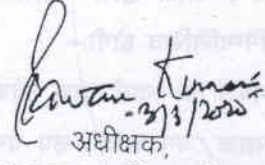 Pawan Kumar
3/3/2020
अधीक्षक,